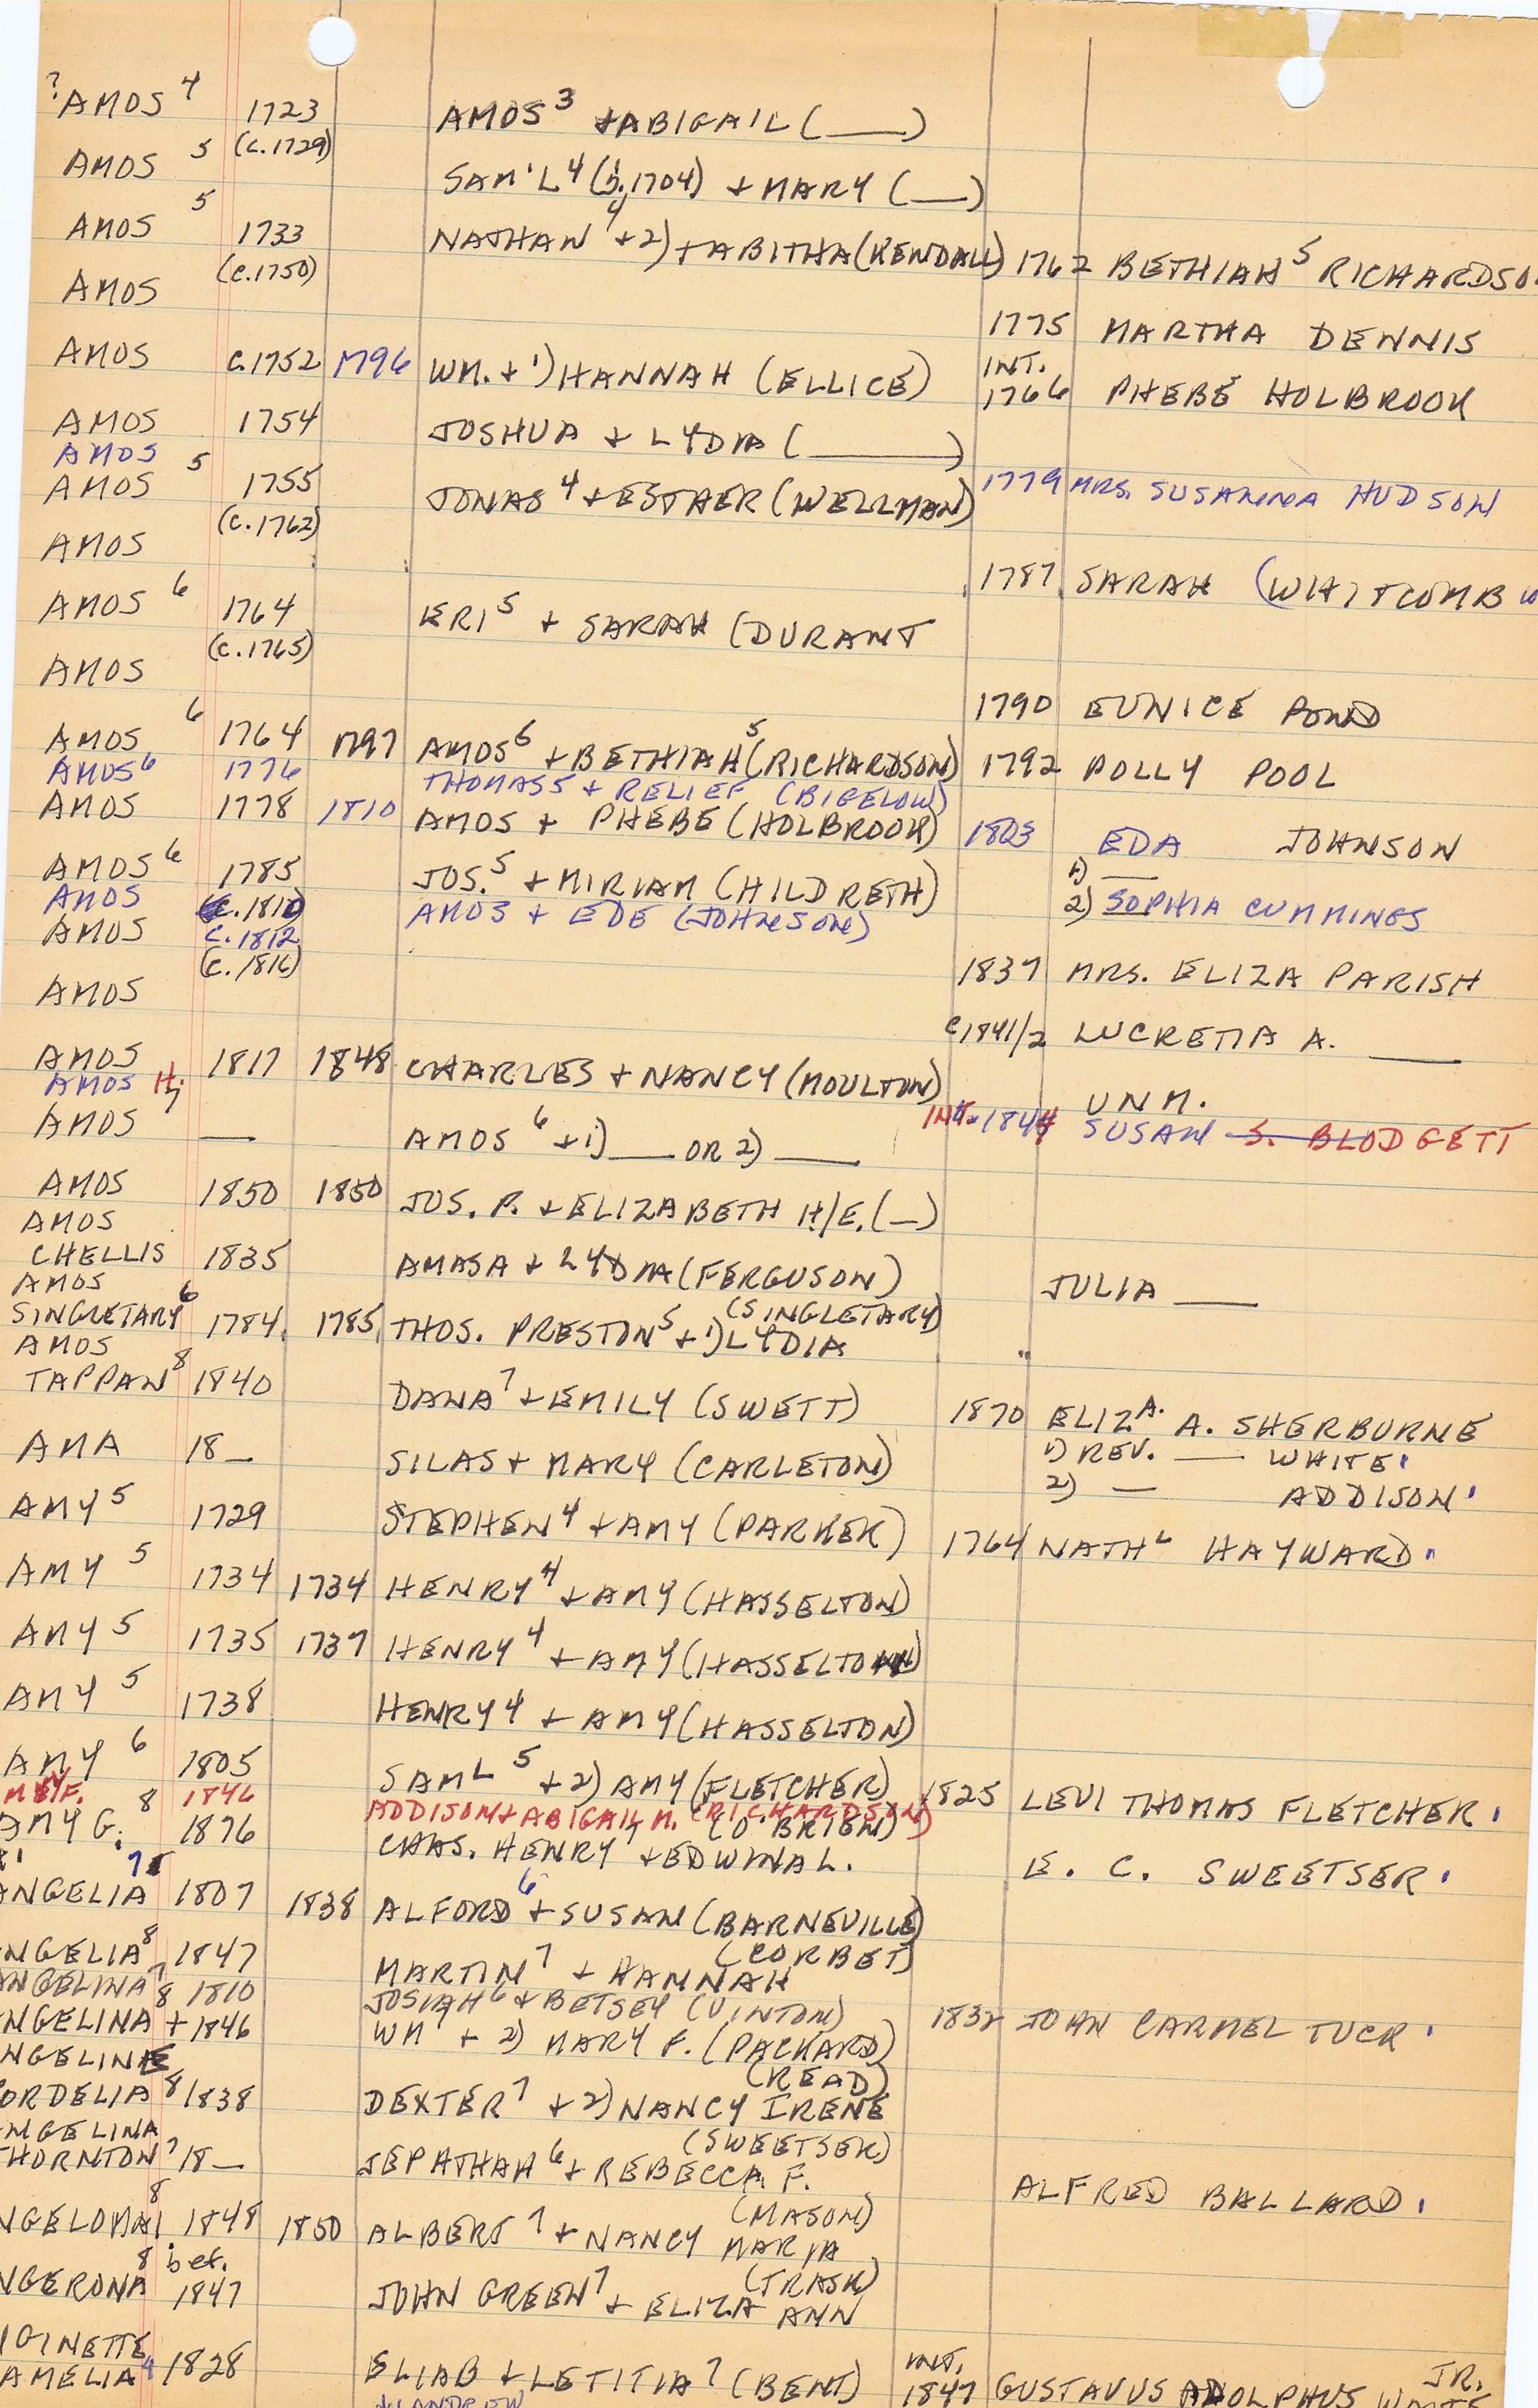 ? AMOS 4 1723 AMOS 3 + ABIGAIL ( ___ )
AMOS 5 (C.1729) SAM'L 4 (b.1704) + MARY ( __ )
AMOS 5 1733 NATHAN 4 + 2) TABITHA (KENDALL) 1762 BETHIAH 5 RICHARDSO
AMOS (C.1750) 1775 MARTHA DENNIS
AMOS C.1752 1796 WM. + 1) HANNAH (ELLICE) INT. 1766 PHEBE HOLBROOK
AMOS 1754 JOSHUA + LYDIA ( ______ )
AMOS 1779 MRS. SUSANNA HUDSON
AMOS 5 1755 JONAS 4 + ESTHER (WELLMAN)
AMOS (C.1762) 1787 SARAH (WHITCOMB
AMOS 6 1764 ERI 5 + SARAH (DURANT
AMOS (C.1765) 1790 EUNICE POND
AMOS 6 1764 1797 AMOS 5 + BETHIAH 5 (RICHARDSON) 1792 POLLY POOL
AMOS 6 1776 THOMAS 5 + RELIEF (BIGELOW)
AMOS 1778 1810 AMOS + PHEBE (HOLBROOK) 1803 EDA JOHNSON
AMOS 6 1785 JOS. 5 + MIRIAM (HILDRETH) 1) __
2) SOPHIA CUMMINGS
AMOS C.1810 AMOS + EDE (JOHNSON)
AMOS C.1812 1837 MRS. ELIZA PARISH
AMOS (C.1816) C1841/2 LUCRETIA A. ___
AMOS 1817 1848 CHARLES + NANCY (MOULTON) UNM.
AMOS H. INT. 1844 SUSAN S. BLODGETT
AMOS __ AMOS 6 + 1) ___ OR 2) ___
AMOS 1850 1850 JOS. P. + ELIZABETH H/E. ( _ )
AMOS
CHELLIS 1835 AMASA + LYDIA (FERGUSON) JULIA ___
AMOS
SINGLETARY 6 1784 1785 THOS. PRESTON 5 + 1) LYDIA (SINGLETARY)
AMOS
TAPPAN 8 1840 DANA 7 + EMILY (SWETT) 1870 ELIZA. A. SHERBURNE
AMA 18_ SILAS + MARY (CARLETON) 1) REV. ___ WHITE.
2) __ ADDISON.
AMY 5 1729 STEPHEN 4 + AMY (PARKER) 1764 NATHL HAYWARD.
AMY 5 1734 1734 HENRY 4 + AMY (HASSELTON)
AMY 5 1735 1737 HENRY 4 + AMY (HASSELTON)
AMY 5 1738 HENRY 4 + AMY (HASSELTON)
AMY 6 1805 SAML 5 + 2) AMY (FLETCHER) 1825 LEVI THOMAS FLETCHER.
F. 1846 ADDISON + ABIGAIL M. (RICHARDSON)
AMY G. 8 1876 CHAS. HENRY 7 + EDWINA L. (O'BRIEN) E. C. SWEETSER.
ANGELIA 7 1807 1838 ALFORD 6 + SUSAN (BARNEVILLE)
NGELIA 8 1847 MARTIN 7 + HANNAH (CORBET)
ANGELINA 7 1810 JOSIAH 6 + BETSEY (VINTON) 1832 JOHN CARMEL TUCK.
NGELINA 8 + 1846 WM 7 + 2) MARY F. (PACKARD)
NGELINE
CORDELIA 8 1838 DEXTER 7 + 2) NANCY IRENE (READ)
NGELINA
THORNTON 7 18_ JEPATHAH 6 + REBECCA F. (SWEETSER) ALFRED BALLARD.
NGELOMA 8 1848 1850 ALBERT 7 + NANCY MARIA (MASON)
NGERONA 8 bef. 1847 JOHN GREEN 7 + ELIZA ANN (TRASK)
GINETTE
AMELIA 1828 ELIAB + LETITIA 7 (BENT) INT. 1847 GUSTAVUS ADOLPHUS JR.
ANDREW